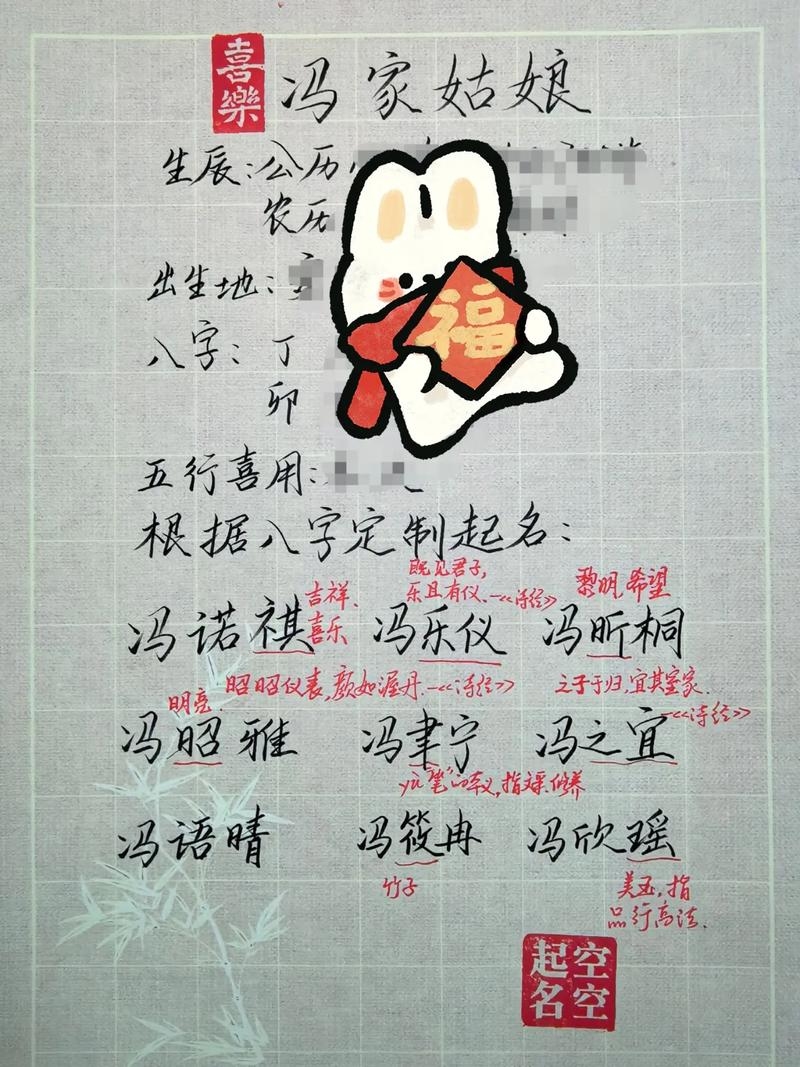 喜樂
冯家姑娘
生辰:公历
农历
出生地:
福
八字: 丁
卯
五行喜用:
根据八字定制起名:
既见君子,
乐且有仪.—《诗经》
吉祥.
喜乐
黎明,希望
冯诺祺 冯乐仪 冯昕桐
明亮.
昭昭仪表,颜如渥丹.—《诗经》
之子于归,宜其室家.
—《诗经》
冯昭雅 冯聿宁 冯之宜
"笔"的本义,指文采.修养
冯语晴 冯筱冉 冯欣瑶
竹子
美玉,指
品行高洁.
空空
起名